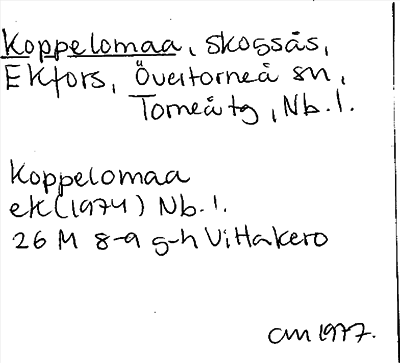 Koppelomaa, skogsås,
Ekfors, Övertorneå sn,
Torneå tg, Nb. l.
Koppelomaa
ek (1974) Nb. l.
26 M 8-9 g-h Vittakero
CM 1977.